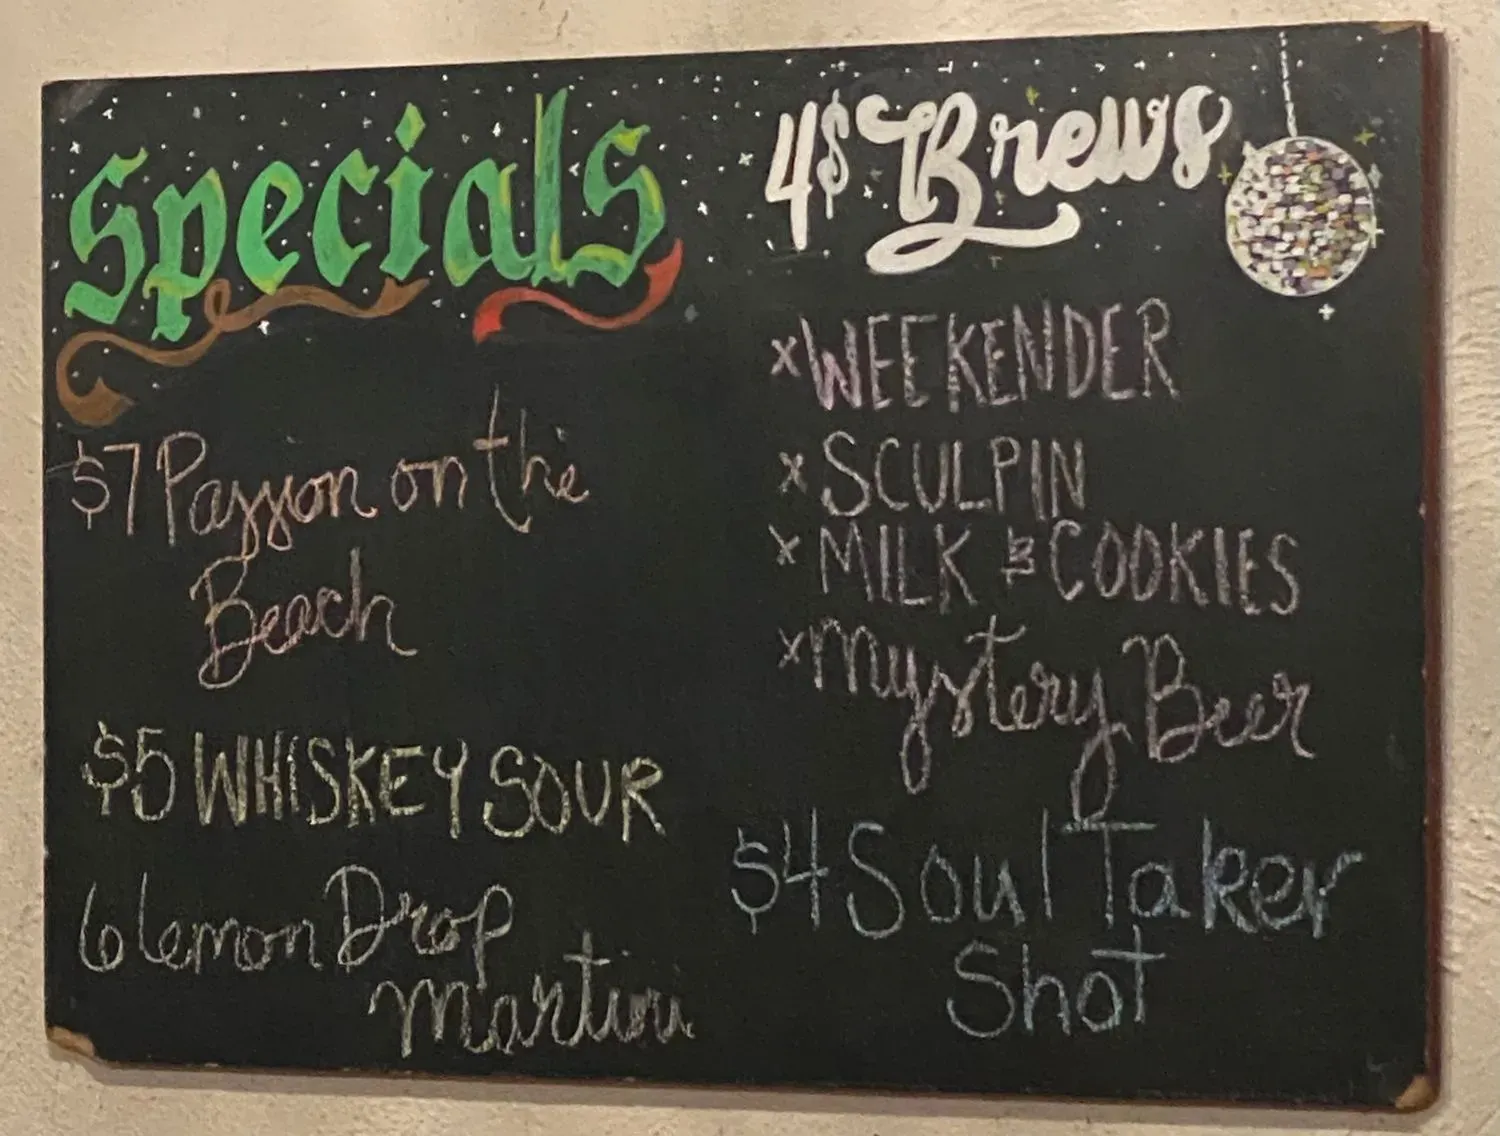 Specials
$7 Passion on the
Beach
$5 WHISKEY SOUR
6 lemon Drop
Martini
4$ Brews
xWEEKENDER
xSCULPIN
xMILK & COOKIES
xMystery Beer
$4 Soul Taker
Shot